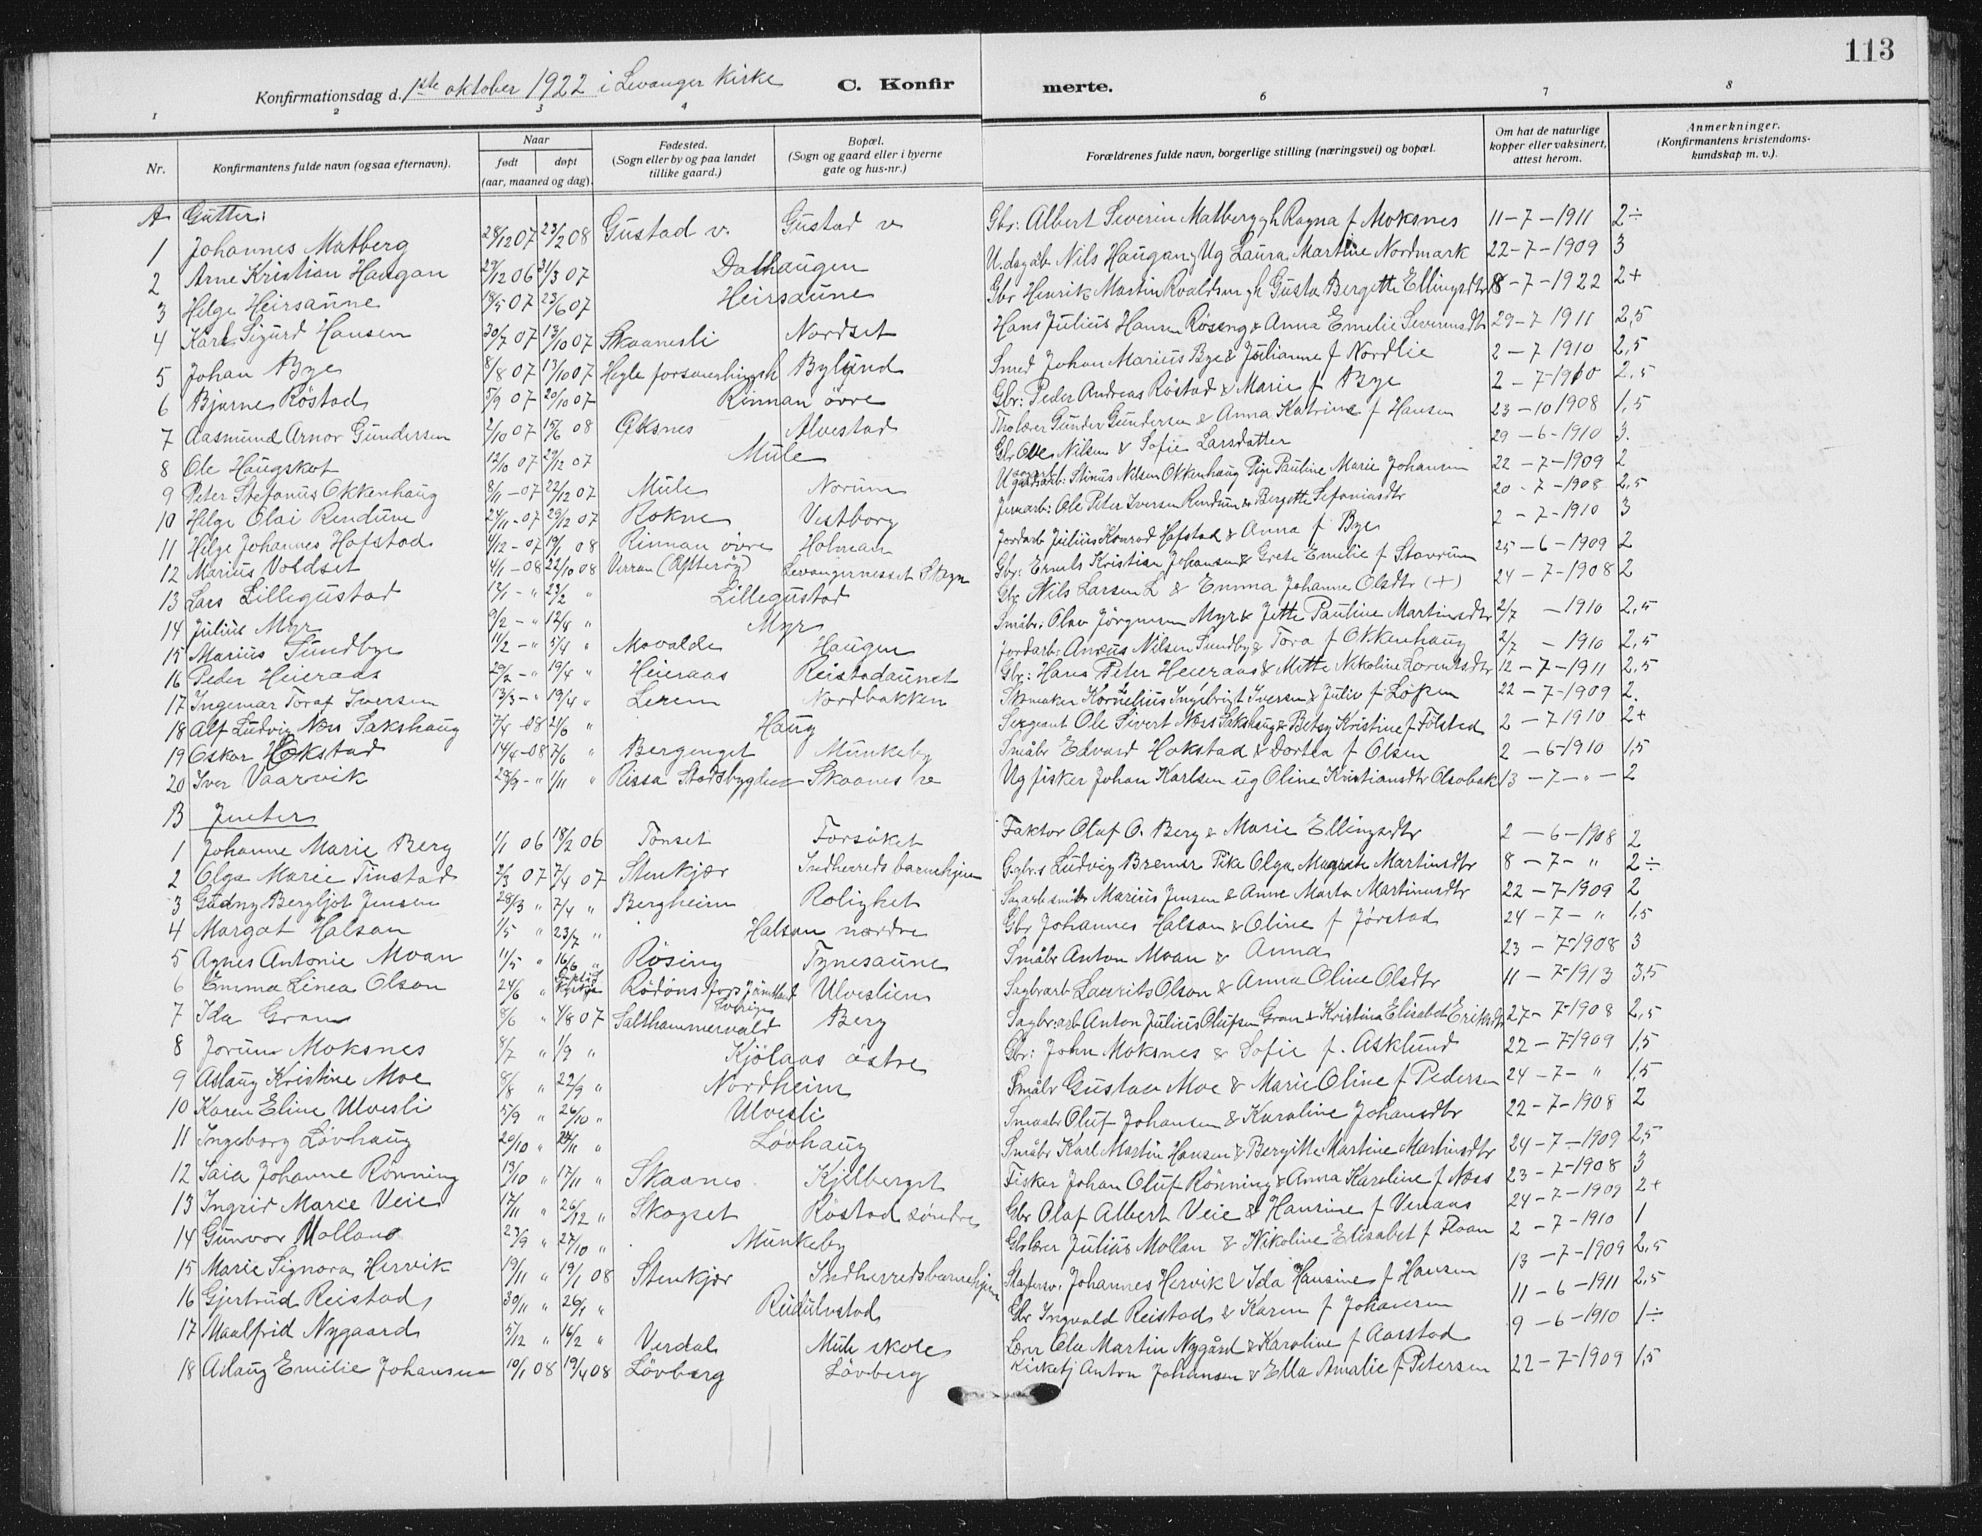 113
Konfirmationsdag d. 1ste oktober 1922 i Levanger kirke C. Konfir merte.
1 2 3 4 6 7 8
Nr. Konfirmantens fulde navn (ogsaa efternavn). Naar født døpt (aar, maaned og dag). Fødested. (Sogn eller by og paa landet tillike gaard.) Bopæl. (Sogn og gaard eller i byerne gate og hus-nr.) Forældrenes fulde navn, borgerlige stilling (næringsvei) og bopæl. Om hat de naturlige kopper eller vaksinert, attest herom. Anmerkninger. (Konfirmantens kristendoms- kundskap m. v.).
A Gutter:
1 Johannes Matberg 28/12 07 23/2 08 Gustad v. Gustad v Gbr: Albert Severin Matberg gh Ragna f Moksnes 11-7-1911 2÷
2 Arne Kristian Haugan 29/12 06 31/3 07 Dalhaugen Nils Haugan, Ug Laura Martine Nordmark 22-7-1909 3
3 Helge Heirsaune 18/5 07 23/6 07 Heirsaune Gbr Henrik Martin Roaldsen gh Gusta Bergette Ellingsdtr 8-7-1922 2+
4 Karl Sigurd Hansen 30/7 07 13/10 07 Skaanesli Nordset Hans Julius Hansen Røseng & Anna Emelie Severinsdtr 29-7 1911 2,5
5 Johan Bye 8/8 07 13/10 07 Hegle Bylund Smed Johan Marius Bye & Julianne f Nordlie 2-7 1910 2,5
6 Bjarne Röstad 5/9 07 20/10 07 Rinnan övre Gbr: Peder Andreas Röstad & Marie f Bye 2-7-1910 2,5
7 Aasmund Arnor Gundersen 2/10 07 15/6 08 Öksnes Alvestad Gunder Gundersen & Anna Katrine f Hansen 23-10 1908 1,5
8 Ole Haugskot 12/10 07 29/12 07 Mule Gbr Ole Nilsen & Sofie Larsdatter 29-6-1910 3.
9 Peter Stefanus Okkenhaug 8/11-07 22/12 07 Mule Norum Stinus Nilsen Okkenhaug Pige Pauline Marie Johansen 22-7-1909 2
10 Helge Olai Rendum 24/11-07 29/12 07 Rokne Vestborg Ole Peter Iversen Rendum & Bergette Stefaniasdtr 20-7-1908 2,5
11 Helge Johannes Hofstad 4/12-07 19/1 08 Rinnan övre Holman Jordarb Julius Konrad Hofstad & Anna f Bye 2-7-1910 3
12 Marius Voldset 4/1-08 22/10 08 Verran Levangernesset Skogn Gbr: Ernels Kristian Johansen & Grete Emelie f Stavrum 25-6-1909 2
13 Lars Lillegustad 12/1-" 23/2 " Lillegustad Gbr Nils Larsen L & Emma Johanne Olsdtr (+) 24-7-1908 2
14 Julius Myr 9/2-" 12/8 " Myr Småbr: Olav Jörgensen Myr & Jette Pauline Martinsdtr 2/7 -1910 2,5
15 Marius Sundbye 11/2-" 5/4 " Movalde Haugen Jordarb: Anæus Nilsen Sundby & Tora f Okkenhaug 2/7 -1910 2,5
16 Peder Heieraas 29/2-" 19/4 " Heieraas Reistadaunet Gbr: Hans Peter Heieraas & Mette Nikoline Lorentsdtr 12-7-1911 2,5
17 Ingemar Toraf Iversen 13/3-" 19/4 " Leren Nordbakken Skomaker Kornelius Ingebrigt Iversen & Julie f. Løken 22-7-1909 2.
18 Alf Ludvig Næs Sakshaug 7/4-08 21/6 " Haug Sergeant Ole Sivert Næs Sakshaug & Betsy Kristine f Folstad 2-7 1910 2+
19 Oskar Hokstad 14/4-08 7/6 " Bergenget Munkeby Småbr Edvard Hokstad & Dortea f Olsen 2-6-1910 1,5
20 Iver Vaarvik 29/9-" 1/11 " Rissa Stadsbygden Skaanes Ug fisker Johan Karlsen ug Oline Kristiansdtr Olsobak 13-7-"- 2
B Jenter
1 Johanne Marie Berg 1/1 06 18/2 06 Tönset Forsöket Faktor Oluf O. Berg & Marie Ellingsdtr 2-6-1908 2
2 Olga Marie Tinstad 2/3 07 7/4 07 Stenkjær Indherreds barnehjem Ludvig Bremer Pike Olga Magrete Martinsdtr 8-7-" 2÷
3 Gudny Bergljot Jensen 28/3 " 7/4 " Bergheim Rolighet Marius Jensen & Anne Marta Martinusdtr 22-7-1909 2
4 Margot Halsan 1/5 " 23/7 " Halsan nordre Gbr Johannes Halsan & Oline f Jørstad 24-7-" 1,5
5 Agnes Antonie Moan 11/5 " 16/6 " Røsing Tynesaune Småbr Anton Moan & Anna 23-7-1908 3
6 Emma Linea Olson 24/6 " Rödöns Jämtland Sverige Ulveslien Sagbrarb Laurits Olson & Anna Oline Olsdtr 11-7-1913 3,5
7 Ida Gran 8/6 " 4/8 07 Salthammervald Berg Sagbr:arb Anton Julius Olufsen Gran & Kristina Elisabet Eriksdtr 27-7-1908 2,5
8 Jorunn Moksnes 8/7 " 1/9 " Kjölaas östre Gbr: John Moksnes & Sofie f. Asklund 22-7-1909 1,5
9 Aslaug Kristine Moe 8/8 " 22/9 " Nordheim Småbr Gustav Moe & Marie Oline f Pedersen 24-7-" 1,5
10 Karen Eline Ulvesli 5/9 " 26/10 " Ulvesli Smaabr Oluf Johansen & Karoline Johansdtr 22-7-1908 2
11 Ingeborg Lövhaug 20/10 " 24/11 " Lövhaug Småbr Karl Martin Hansen & Bergitte Martine Martinsdtr 24-7-1909 2,5
12 Saia Johanne Rönning 13/10 " 17/11 " Skaanes Kjelberget Fisker Johan Oluf Rönning & Anna Karoline f Næss 23-7-1908 3
13 Ingrid Marie Veie 17/11 " 26/12 " Skogset Röstad söndre Gbr Olaf Albert Veie & Hansine f Veraas 24-7-1909 2+
14 Gunvor Mollan 23/9 " 27/10 " Munkeby Julius Mollan & Nikoline Elisabet f Floan 2-7-1910 1
15 Marie Signora Hervik 19/11 " 19/1 08 Stenkjær Indherreds barnehjem Johannes Hervik & Ida Hansine f Hansen 13-7-1909 2,5
16 Gjertrud Reistad 30/11 " 26/1 " Reidulvstad Gbr Ingvald Reistad & Karen f Johansen 11-6-1911 2,5
17 Maalfrid Nygaard 5/12 " 16/2 " Verdal Mule skole Lærer Ole Martin Nygård & Karoline f Aarstad 9-6-1910 1÷
18 Aslaug Emilie Johansen 10/1 08 19/4 08 Lövberg Lövberg Kirketj Anton Johansen & Ella Amalie f Petersen 22-7-1909 1,5